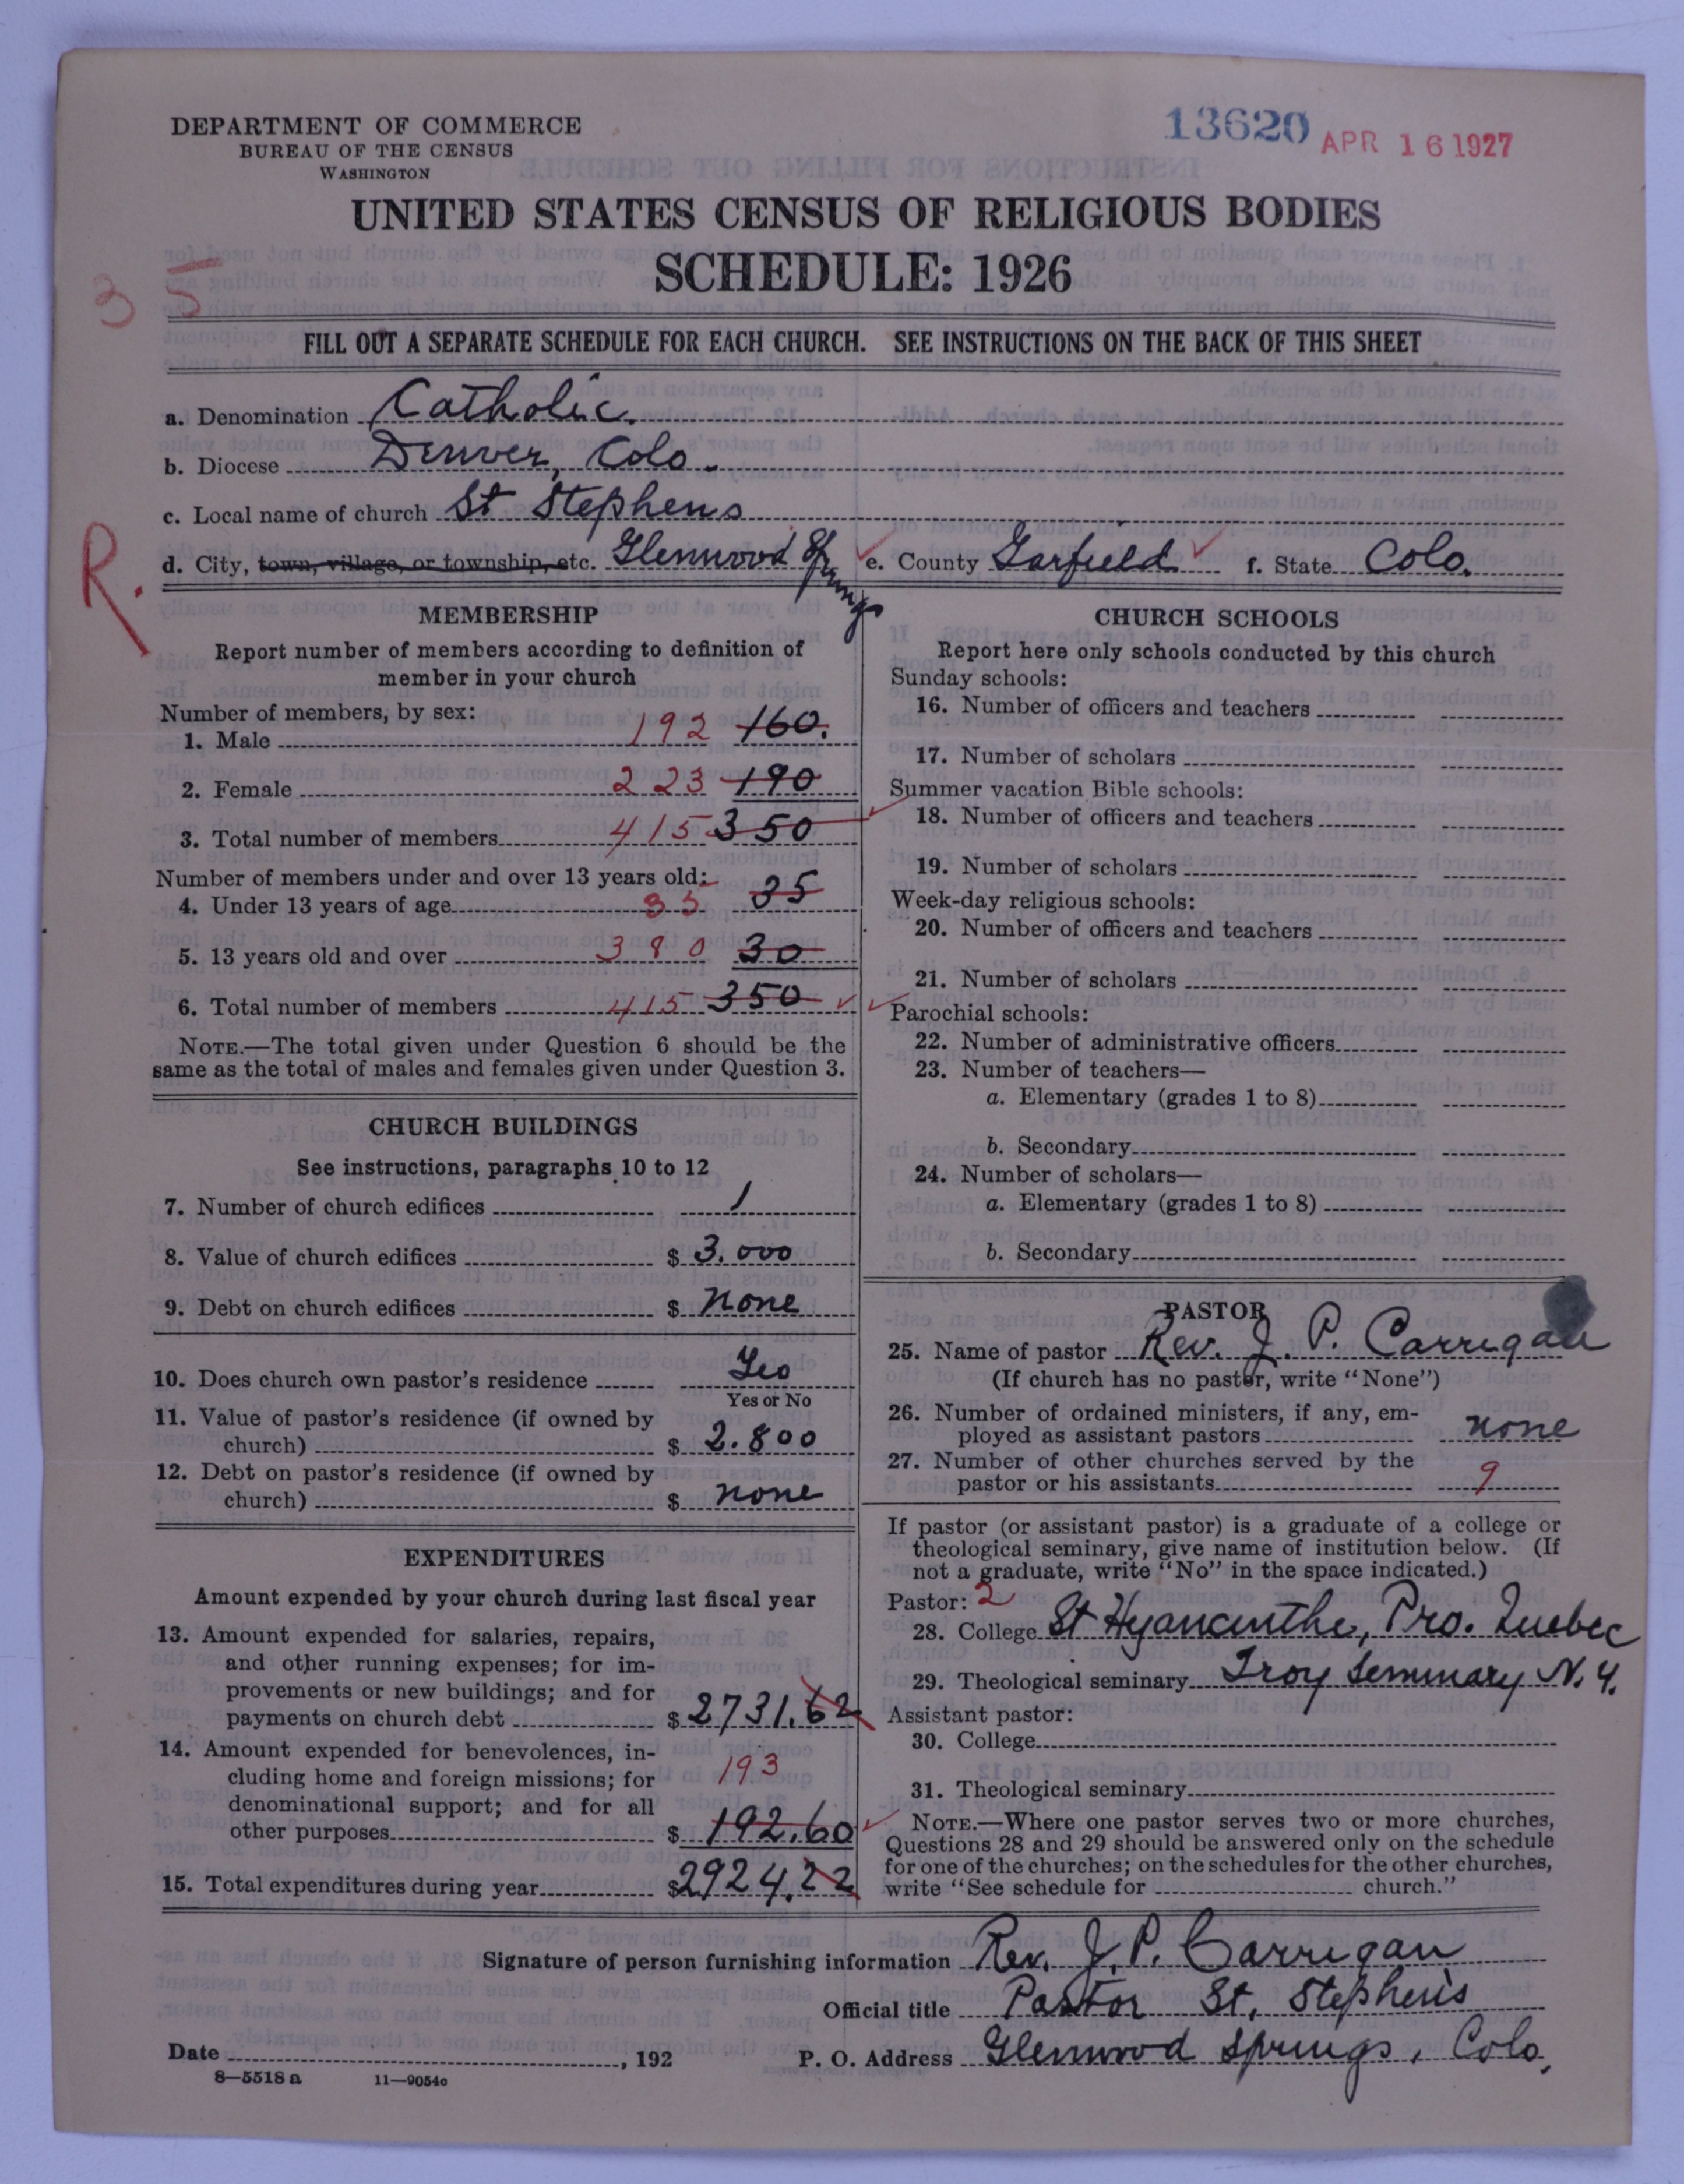 DEPARTMENT OF COMMERCE
BUREAU OF THE CENSUS
WASHINGTON
13620 APR 16 1927
UNITED STATES CENSUS OF RELIGIOUS BODIES
SCHEDULE: 1926
35
FILL OUT A SEPARATE SCHEDULE FOR EACH CHURCH. SEE INSTRUCTIONS ON THE BACK OF THIS SHEET
a. Denomination Catholic.
b. Diocese Denver, Colo.
c. Local name of church St Stephens
R.
d. City, town, village, or township, etc. Glenwood Springs e. County Garfield f. State Colo.
MEMBERSHIP
Report number of members according to definition of
member in your church
Number of members, by sex:
1. Male 192 160.
2. Female 223 190
3. Total number of members 415 350
Number of members under and over 13 years old:
4. Under 13 years of age 35
5. 13 years old and over 380 30
6. Total number of members 415 350
NOTE.—The total given under Question 6 should be the
same as the total of males and females given under Question 3.
CHURCH BUILDINGS
See instructions, paragraphs 10 to 12
7. Number of church edifices 1
8. Value of church edifices $ 3.000
9. Debt on church edifices $ none
10. Does church own pastor's residence Yes
Yes or No
11. Value of pastor's residence (if owned by
church) $ 2.800
12. Debt on pastor's residence (if owned by
church) $ none
EXPENDITURES
Amount expended by your church during last fiscal year
13. Amount expended for salaries, repairs,
and other running expenses; for im-
provements or new buildings; and for
payments on church debt $ 2731.62
14. Amount expended for benevolences, in-
cluding home and foreign missions; for 193
denominational support; and for all
other purposes $ 192.60
15. Total expenditures during year $2924.22
CHURCH SCHOOLS
Report here only schools conducted by this church
Sunday schools:
16. Number of officers and teachers
17. Number of scholars
Summer vacation Bible schools:
18. Number of officers and teachers
19. Number of scholars
Week-day religious schools:
20. Number of officers and teachers
21. Number of scholars
Parochial schools:
22. Number of administrative officers
23. Number of teachers—
a. Elementary (grades 1 to 8)
b. Secondary
24. Number of scholars—
a. Elementary (grades 1 to 8)
b. Secondary
PASTOR
25. Name of pastor Rev. J. P. Carrigan
(If church has no pastor, write "None")
26. Number of ordained ministers, if any, em-
ployed as assistant pastors none
27. Number of other churches served by the
pastor or his assistants 9
If pastor (or assistant pastor) is a graduate of a college or
theological seminary, give name of institution below. (If
not a graduate, write "No" in the space indicated.)
Pastor: 2
28. College St Hyancinthe, Pro. Quebec
29. Theological seminary Troy Seminary N.Y.
Assistant pastor:
30. College
31. Theological seminary
NOTE.—Where one pastor serves two or more churches,
Questions 28 and 29 should be answered only on the schedule
for one of the churches; on the schedules for the other churches,
write "See schedule for church."
Signature of person furnishing information Rev. J. P. Carrigan
Official title Pastor St. Stephen's
Date , 192 P. O. Address Glenwood Springs, Colo.
8—5518 a 11—9054c